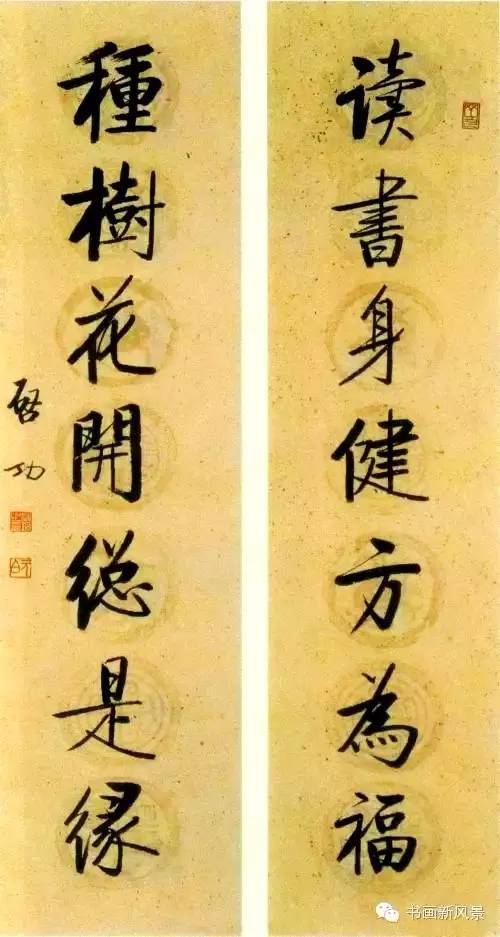 读书身健方為福
種樹花開總是缘
啓功
书画新风景